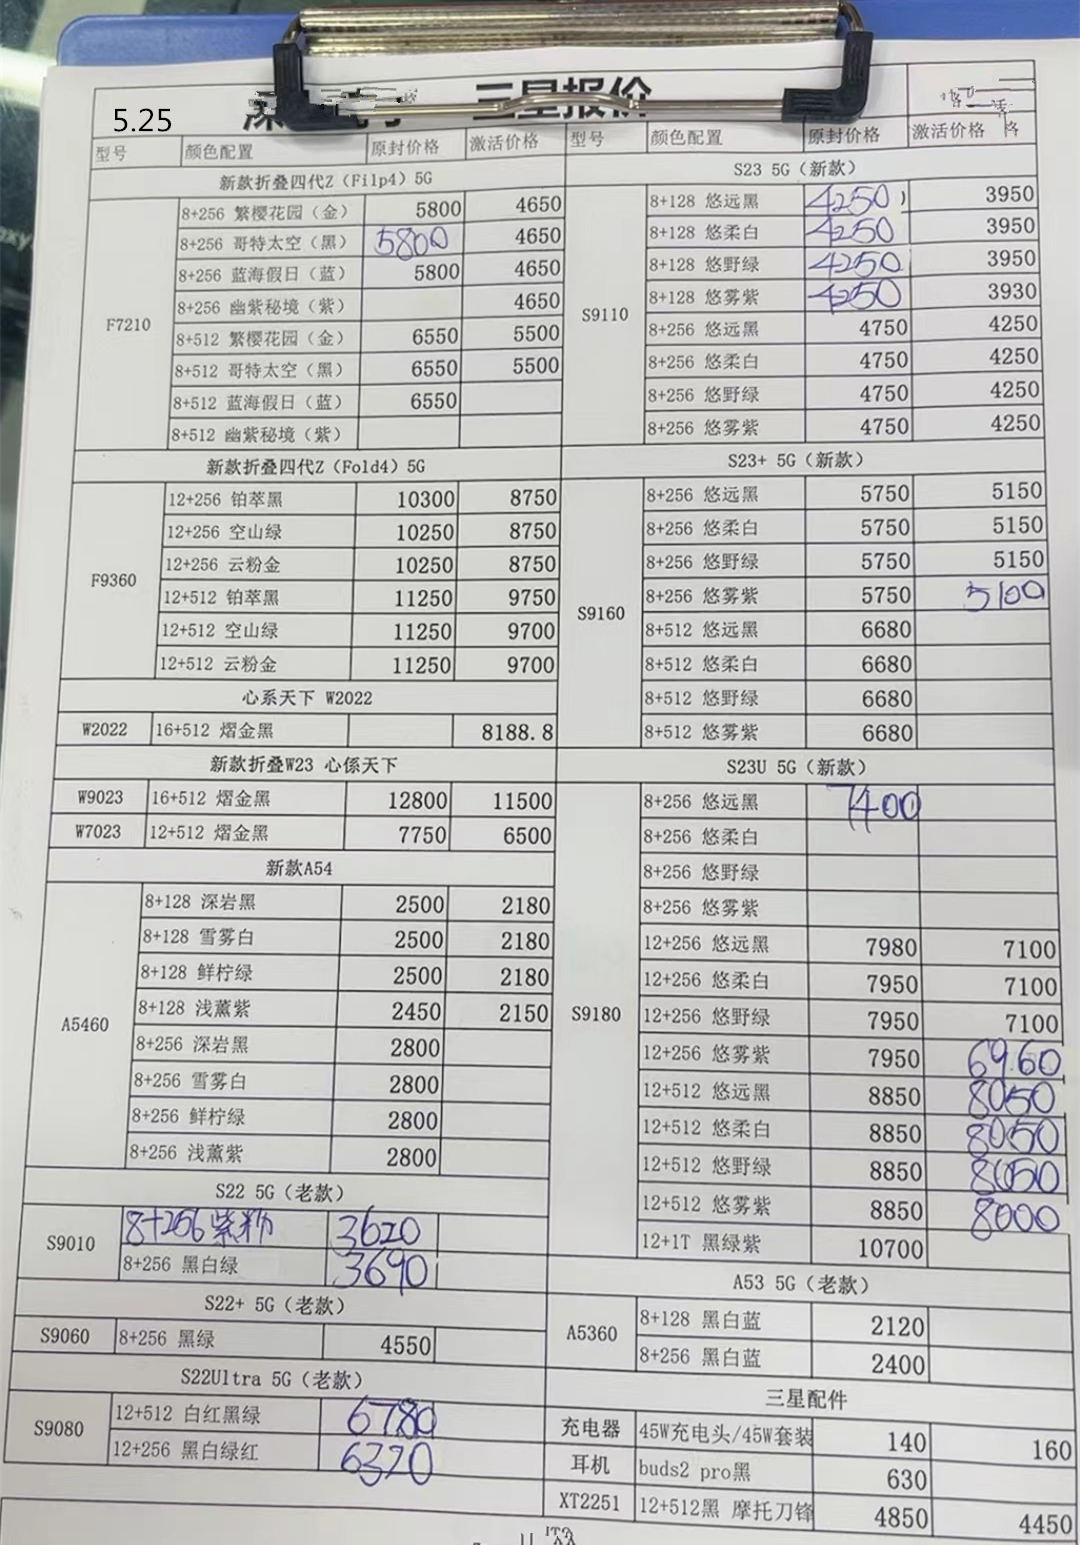 5.25
三星报价
型号 颜色配置 原封价格 激活价格
新款折叠四代Z（Filp4）5G
F7210
8+256 繁樱花园（金） 5800 4650
8+256 哥特太空（黑） 5800 4650
8+256 蓝海假日（蓝） 5800 4650
8+256 幽紫秘境（紫） 4650
8+512 繁樱花园（金） 6550 5500
8+512 哥特太空（黑） 6550 5500
8+512 蓝海假日（蓝） 6550
8+512 幽紫秘境（紫）
新款折叠四代Z（Fold4）5G
F9360
12+256 铂萃黑 10300 8750
12+256 空山绿 10250 8750
12+256 云粉金 10250 8750
12+512 铂萃黑 11250 9750
12+512 空山绿 11250 9700
12+512 云粉金 11250 9700
心系天下 W2022
W2022 16+512 熠金黑 8188.8
新款折叠W23 心係天下
W9023 16+512 熠金黑 12800 11500
W7023 12+512 熠金黑 7750 6500
新款A54
A5460
8+128 深岩黑 2500 2180
8+128 雪雾白 2500 2180
8+128 鲜柠绿 2500 2180
8+128 浅薰紫 2450 2150
8+256 深岩黑 2800
8+256 雪雾白 2800
8+256 鲜柠绿 2800
8+256 浅薰紫 2800
S22 5G（老款）
S9010
8+256 紫粉 3620
8+256 黑白绿 3690
S22+ 5G（老款）
S9060 8+256 黑绿 4550
S22Ultra 5G（老款）
S9080
12+512 白红黑绿 6780
12+256 黑白绿红 6320
型号 颜色配置 原封价格 激活价格
S23 5G（新款）
S9110
8+128 悠远黑 4250 3950
8+128 悠柔白 4250 3950
8+128 悠野绿 4250 3950
8+128 悠雾紫 4250 3930
8+256 悠远黑 4750 4250
8+256 悠柔白 4750 4250
8+256 悠野绿 4750 4250
8+256 悠雾紫 4750 4250
S23+ 5G（新款）
S9160
8+256 悠远黑 5750 5150
8+256 悠柔白 5750 5150
8+256 悠野绿 5750 5150
8+256 悠雾紫 5750 5100
8+512 悠远黑 6680
8+512 悠柔白 6680
8+512 悠野绿 6680
8+512 悠雾紫 6680
S23U 5G（新款）
S9180
8+256 悠远黑 7400
8+256 悠柔白
8+256 悠野绿
8+256 悠雾紫
12+256 悠远黑 7980 7100
12+256 悠柔白 7950 7100
12+256 悠野绿 7950 7100
12+256 悠雾紫 7950 6960
12+512 悠远黑 8850 8050
12+512 悠柔白 8850 8050
12+512 悠野绿 8850 8050
12+512 悠雾紫 8850 8000
12+1T 黑绿紫 10700
A53 5G（老款）
A5360
8+128 黑白蓝 2120
8+256 黑白蓝 2400
三星配件
充电器 45W充电头/45W套装 140 160
耳机 buds2 pro黑 630
XT2251 12+512黑 摩托刀锋 4850 4450